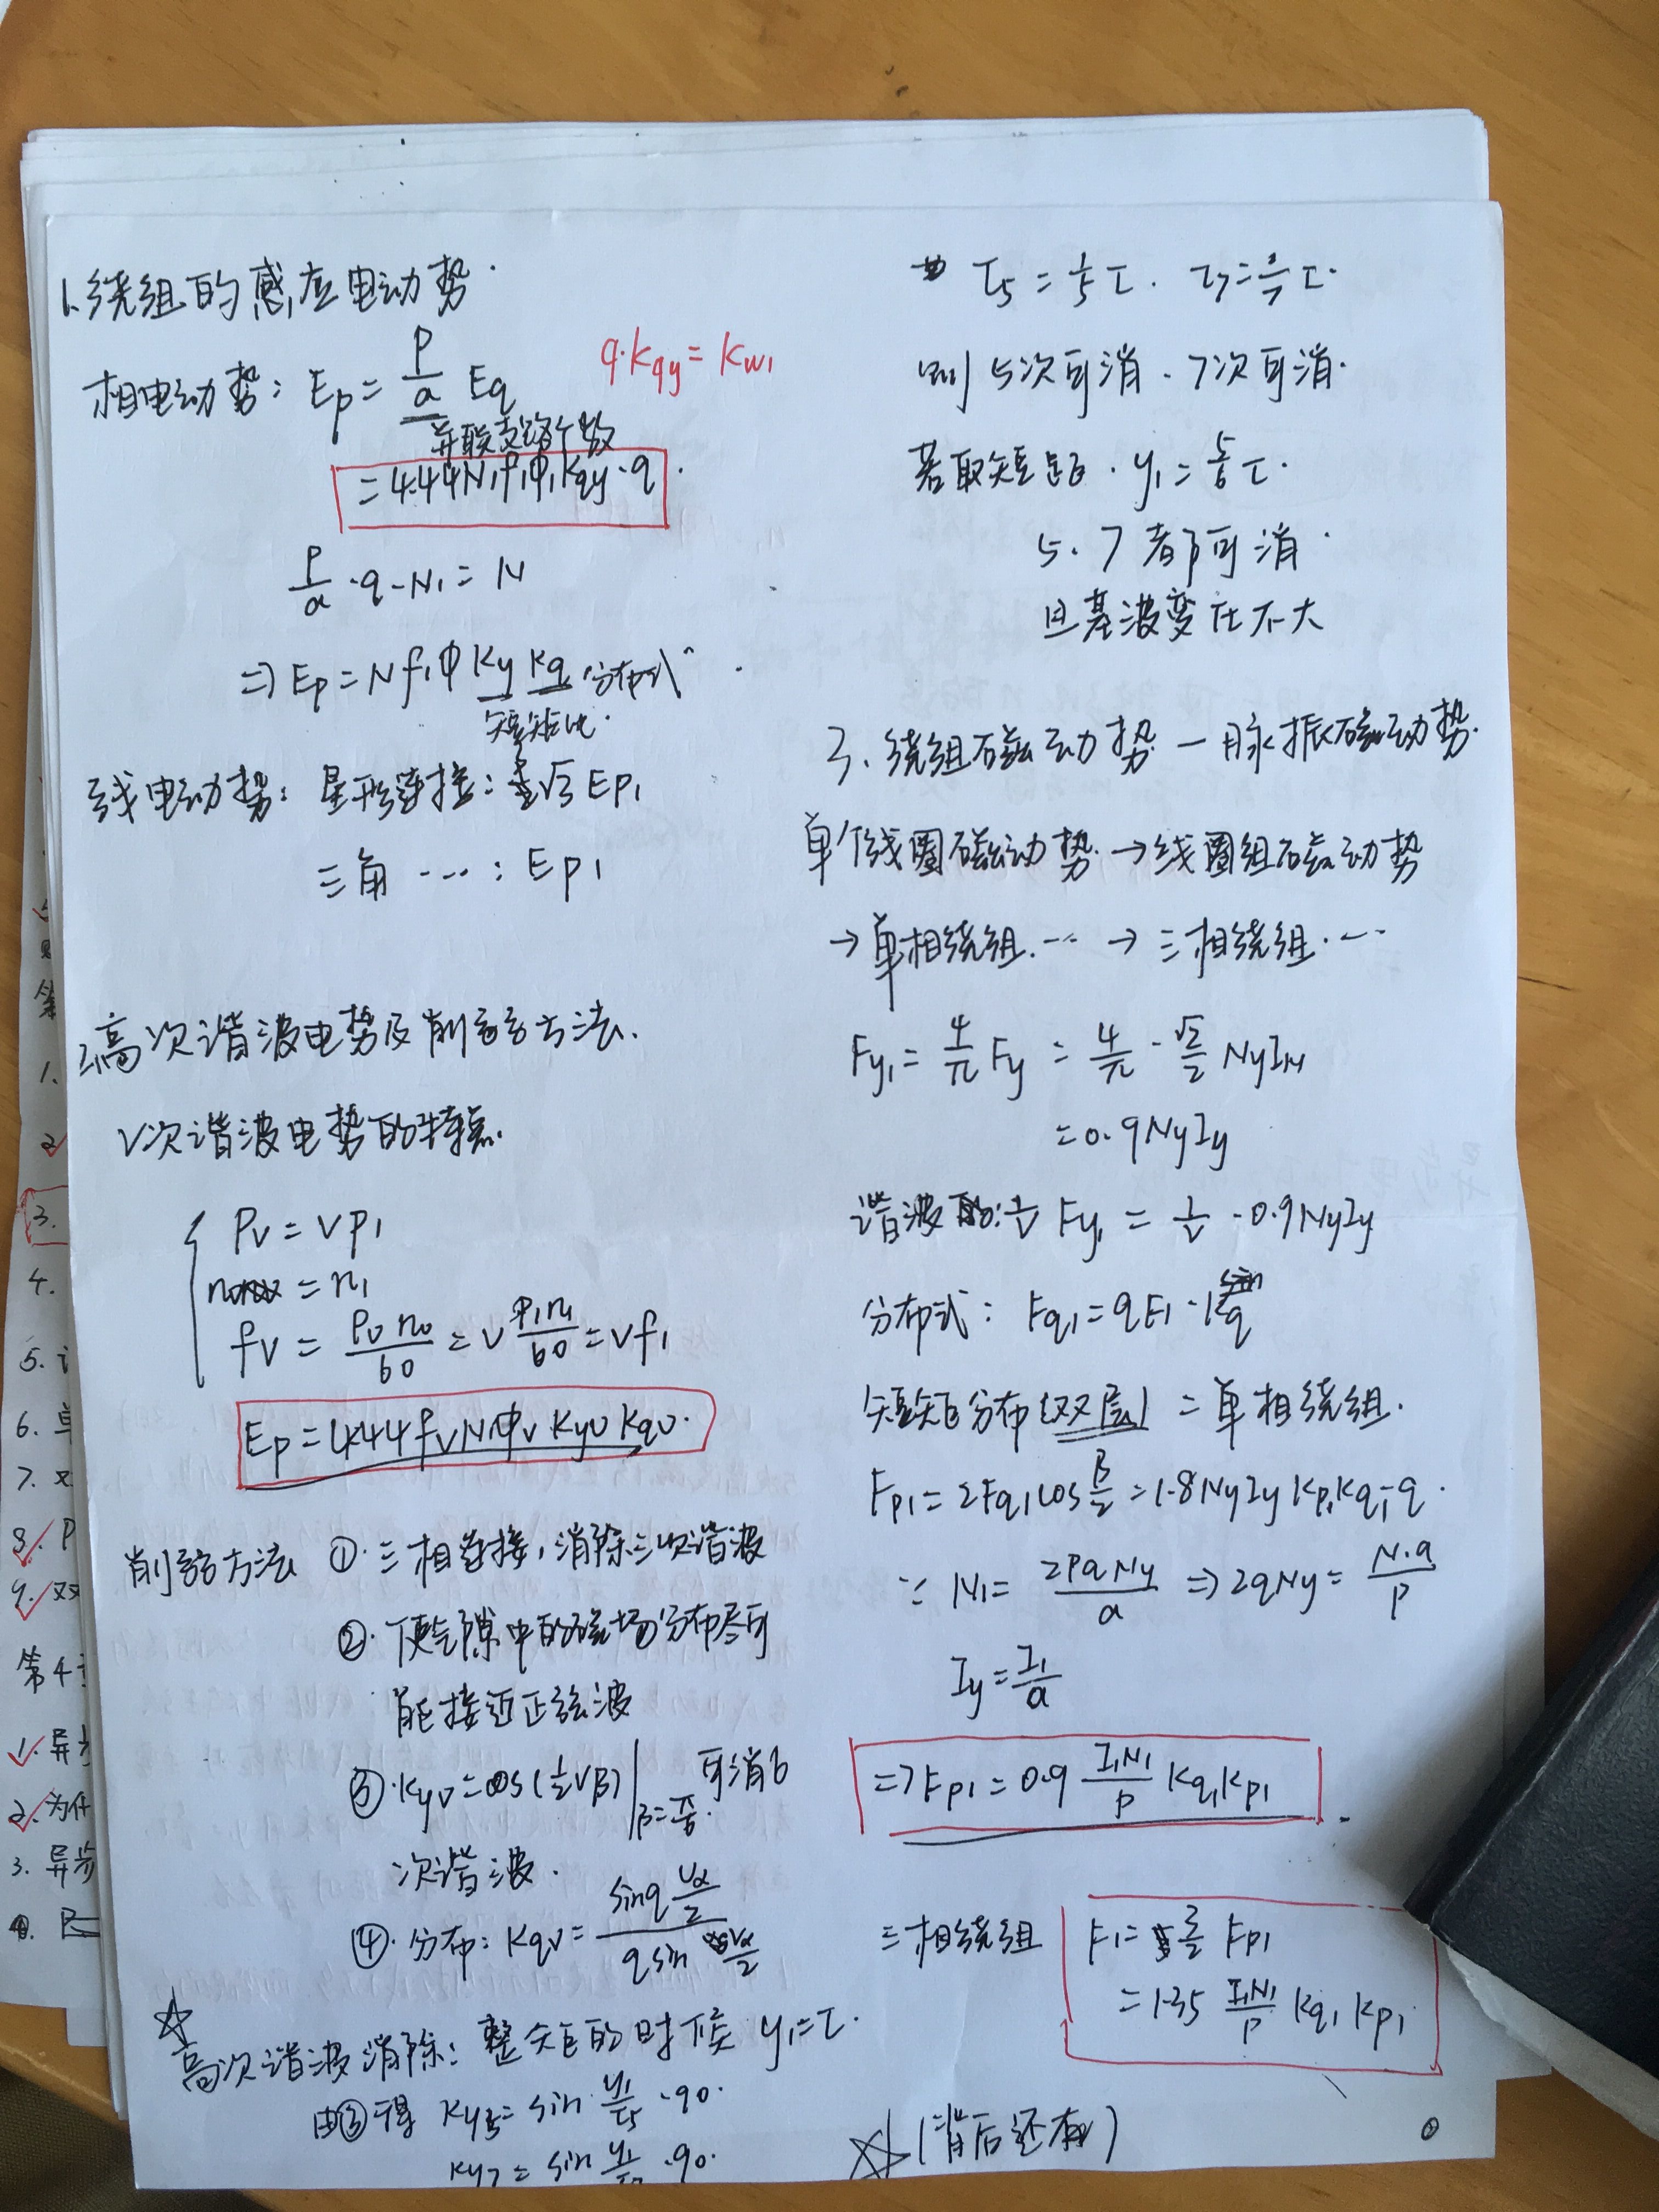 1.绕组的感应电动势.
相电动势: Ep = P/a Eq
q·Kqy = Kw1
并联支路个数
= 4.44N1f1Φ1Kqy·q.
P/a ·q·N1 = N
=> Ep = Nf1Φ Ky Kq 分布式
短矩比.
线电动势: 星形连接: √3 Ep1
三角 ···: Ep1
2.高次谐波电势及削弱方法.
ν次谐波电势的特点.
Pν = νP1
= n1
fν = Pν nν/60 = ν P1n1/60 = νf1
Ep = 4.44 fν N1 Φν Kyν Kqν.
削弱方法 ①·三相连接,消除三次谐波
②·使气隙中的磁场分布尽可
能接近正弦波
③·Kyν = cos(½νβ)|β=π/6. 可消6
次谐波.
④·分布: Kqν = sinq να/2 / q sin να/2
☆
高次谐波消除: 整矩的时候 y1=τ.
由③得 Ky5 = sin y1/τ5 ·90.
Ky7 = sin y1/τ7 ·90.
τ5 = 1/5 τ. τ7 = 1/7 τ.
则 5次可消. 7次可消.
若取短距. y1 = 5/6 τ.
5. 7 都可消.
且基波变化不大
3. 绕组磁动势 — 脉振磁动势.
单个线圈磁动势. → 线圈组磁动势
→ 单相绕组. ··· → 三相绕组. ···
Fy1 = 4/π Fy = 4/π · √2/2 NyIy
= 0.9NyIy
谐波的: 1/ν Fy1 = 1/ν · 0.9NyIy
分布式: Fq1 = qF1 · Kq
短矩分布(双层) = 单相绕组.
Fp1 = 2Fq1 cos β/2 = 1.8NyIy Kp1 Kq1·q.
∵ N1 = 2PqNy/a => 2qNy = N·a/P
Iy = I1/a
=> Fp1 = 0.9 I1N1/P Kq1Kp1.
三相绕组 F1 = 3/2 Fp1
= 1.35 I1N1/P Kq1 Kp1
☆ (背后还有)
1.
2
3.
4.
5.
6. 单
7. 双
8. P
9. 双
第4
1. 异步
2. 为什
3. 异步